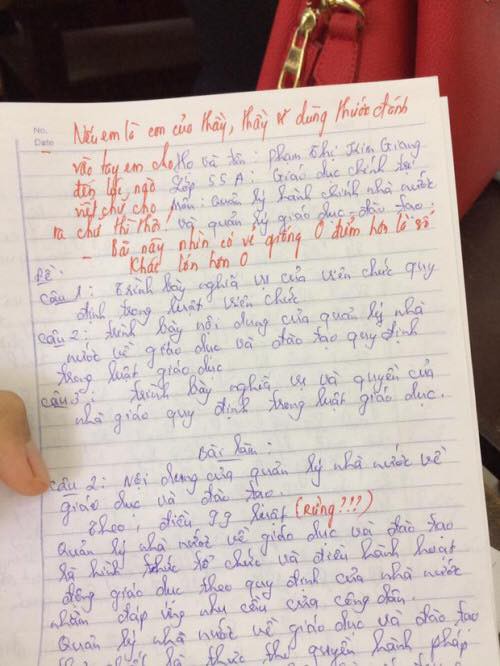 No.
Date
Nếu em là con của thầy, thầy sẽ dùng thước đánh
vào tay em cho
đến lúc nào
viết chữ cho
ra chữ thì thôi!
- Bài này nhìn có vẻ giống 0 điểm hơn là số
khác lớn hơn 0
Họ và tên: Phạm Thị Kiên Giang
Lớp 55A: Giáo dục chính trị
Môn: Quản lý hành chính nhà nước
và quản lý giáo dục, đào tạo.
Đề:
Câu 1: Trình bày nghĩa vụ của viên chức quy
định trong luật viên chức
Câu 2: Trình bày nội dung của quản lý nhà
nước về giáo dục và đào tạo quy định
trong luật giáo dục
Câu 3: Trình bày nghĩa vụ và quyền của
nhà giáo quy định trong luật giáo dục.
Bài làm:
Câu 2: Nội dung của quản lý nhà nước về
giáo dục và đào tạo.
Theo, điều 99 luật (Rừng???)
Quản lý nhà nước về giáo dục và đào tạo
là hình thức tổ chức và điều hành hoạt
động giáo dục theo quy định của nhà nước
nhằm đáp ứng nhu cầu của công dân.
Quản lý nhà nước về giáo dục và đào tạo
là thực thi quyền hành pháp